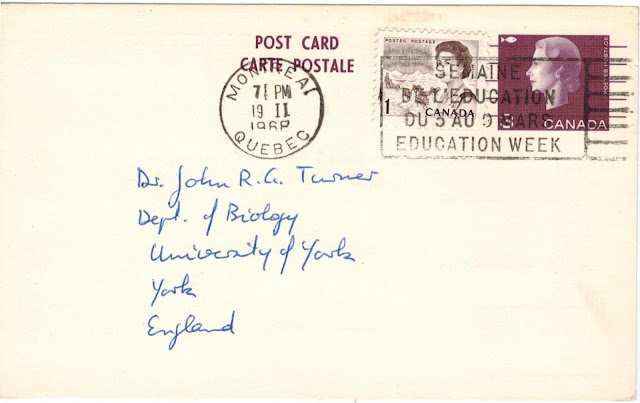 POST CARD
CARTE POSTALE
MONTREAL
7 PM
19 II
1968
QUEBEC
POSTES POSTAGE
1
CANADA
SEMAINE
DE L'EDUCATION
DU 3 AU 9 MARS
EDUCATION WEEK
POSTES POSTAGE
CANADA
Dr. John R.G. Turner
Dept. of Biology
University of York
York
England